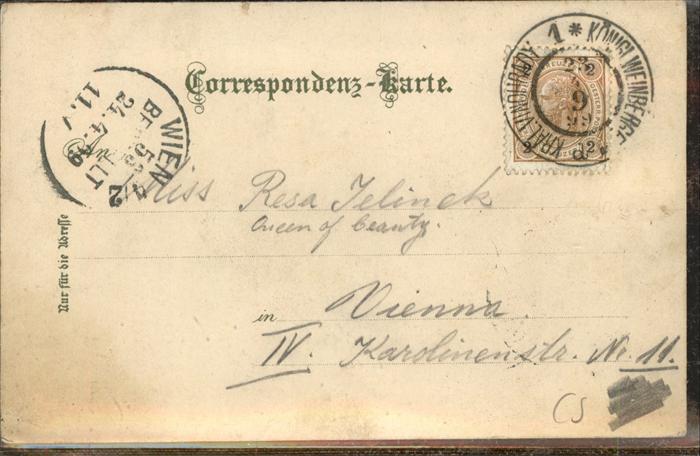 Correspondenz-Karte.
1 * KÖNIGL. WEINBERGE
KRÁL. VINOHRADY
9
99
d
2 2
WIEN
BESTELLT
24. 4. 99
11. V
An
Miss Resa Jelinek
Queen of beauty.
in Vienna
IV. Karolinenstr. Nr. 11.
Nur für die Adresse
CS